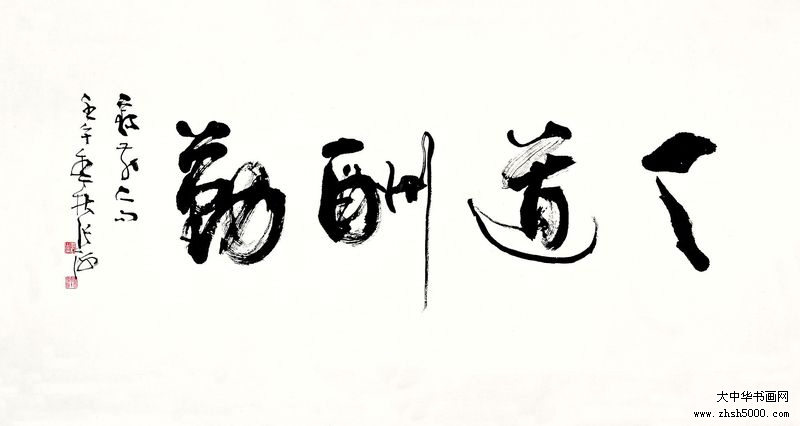 天道酬勤
壬午 张海
大中华书画网
www.zhsh5000.com